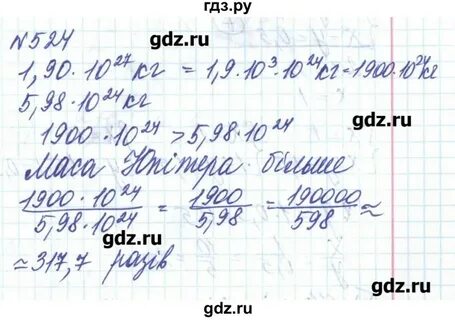 gdz.ru
№524
1,90·10²⁷кг = 1,9·10³·10²⁴кг=1900·10²⁴кг
5,98·10²⁴кг
gdz.ru gdz.ru
1900·10²⁴>5,98·10²⁴
Маса Юпітера більше
gdz.ru
1900·10²⁴/5,98·10²⁴ = 1900/5,98 = 190000/598 ≈
gdz.ru
≈317,7 разів
gdz.ru
gdz.ru